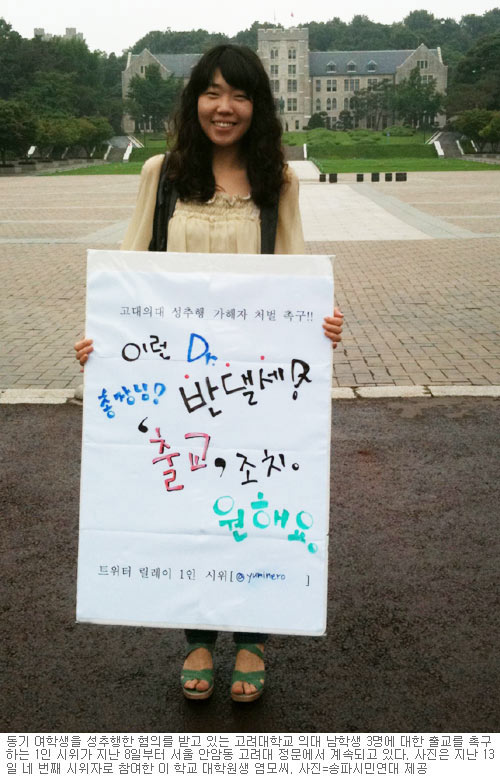 고대의대 성추행 가해자 처벌 촉구!!
이런 Dr.
총장님? 반댈세!
'출교, 조치.
원해요.
트위터 릴레이 1인 시위[@yuminero ]
동기 여학생을 성추행한 혐의를 받고 있는 고려대학교 의대 남학생 3명에 대한 출교를 촉구
하는 1인 시위가 지난 8일부터 서울 안암동 고려대 정문에서 계속되고 있다. 사진은 지난 13
일 네 번째 시위자로 참여한 이 학교 대학원생 염모씨. 사진=송파시민연대 제공